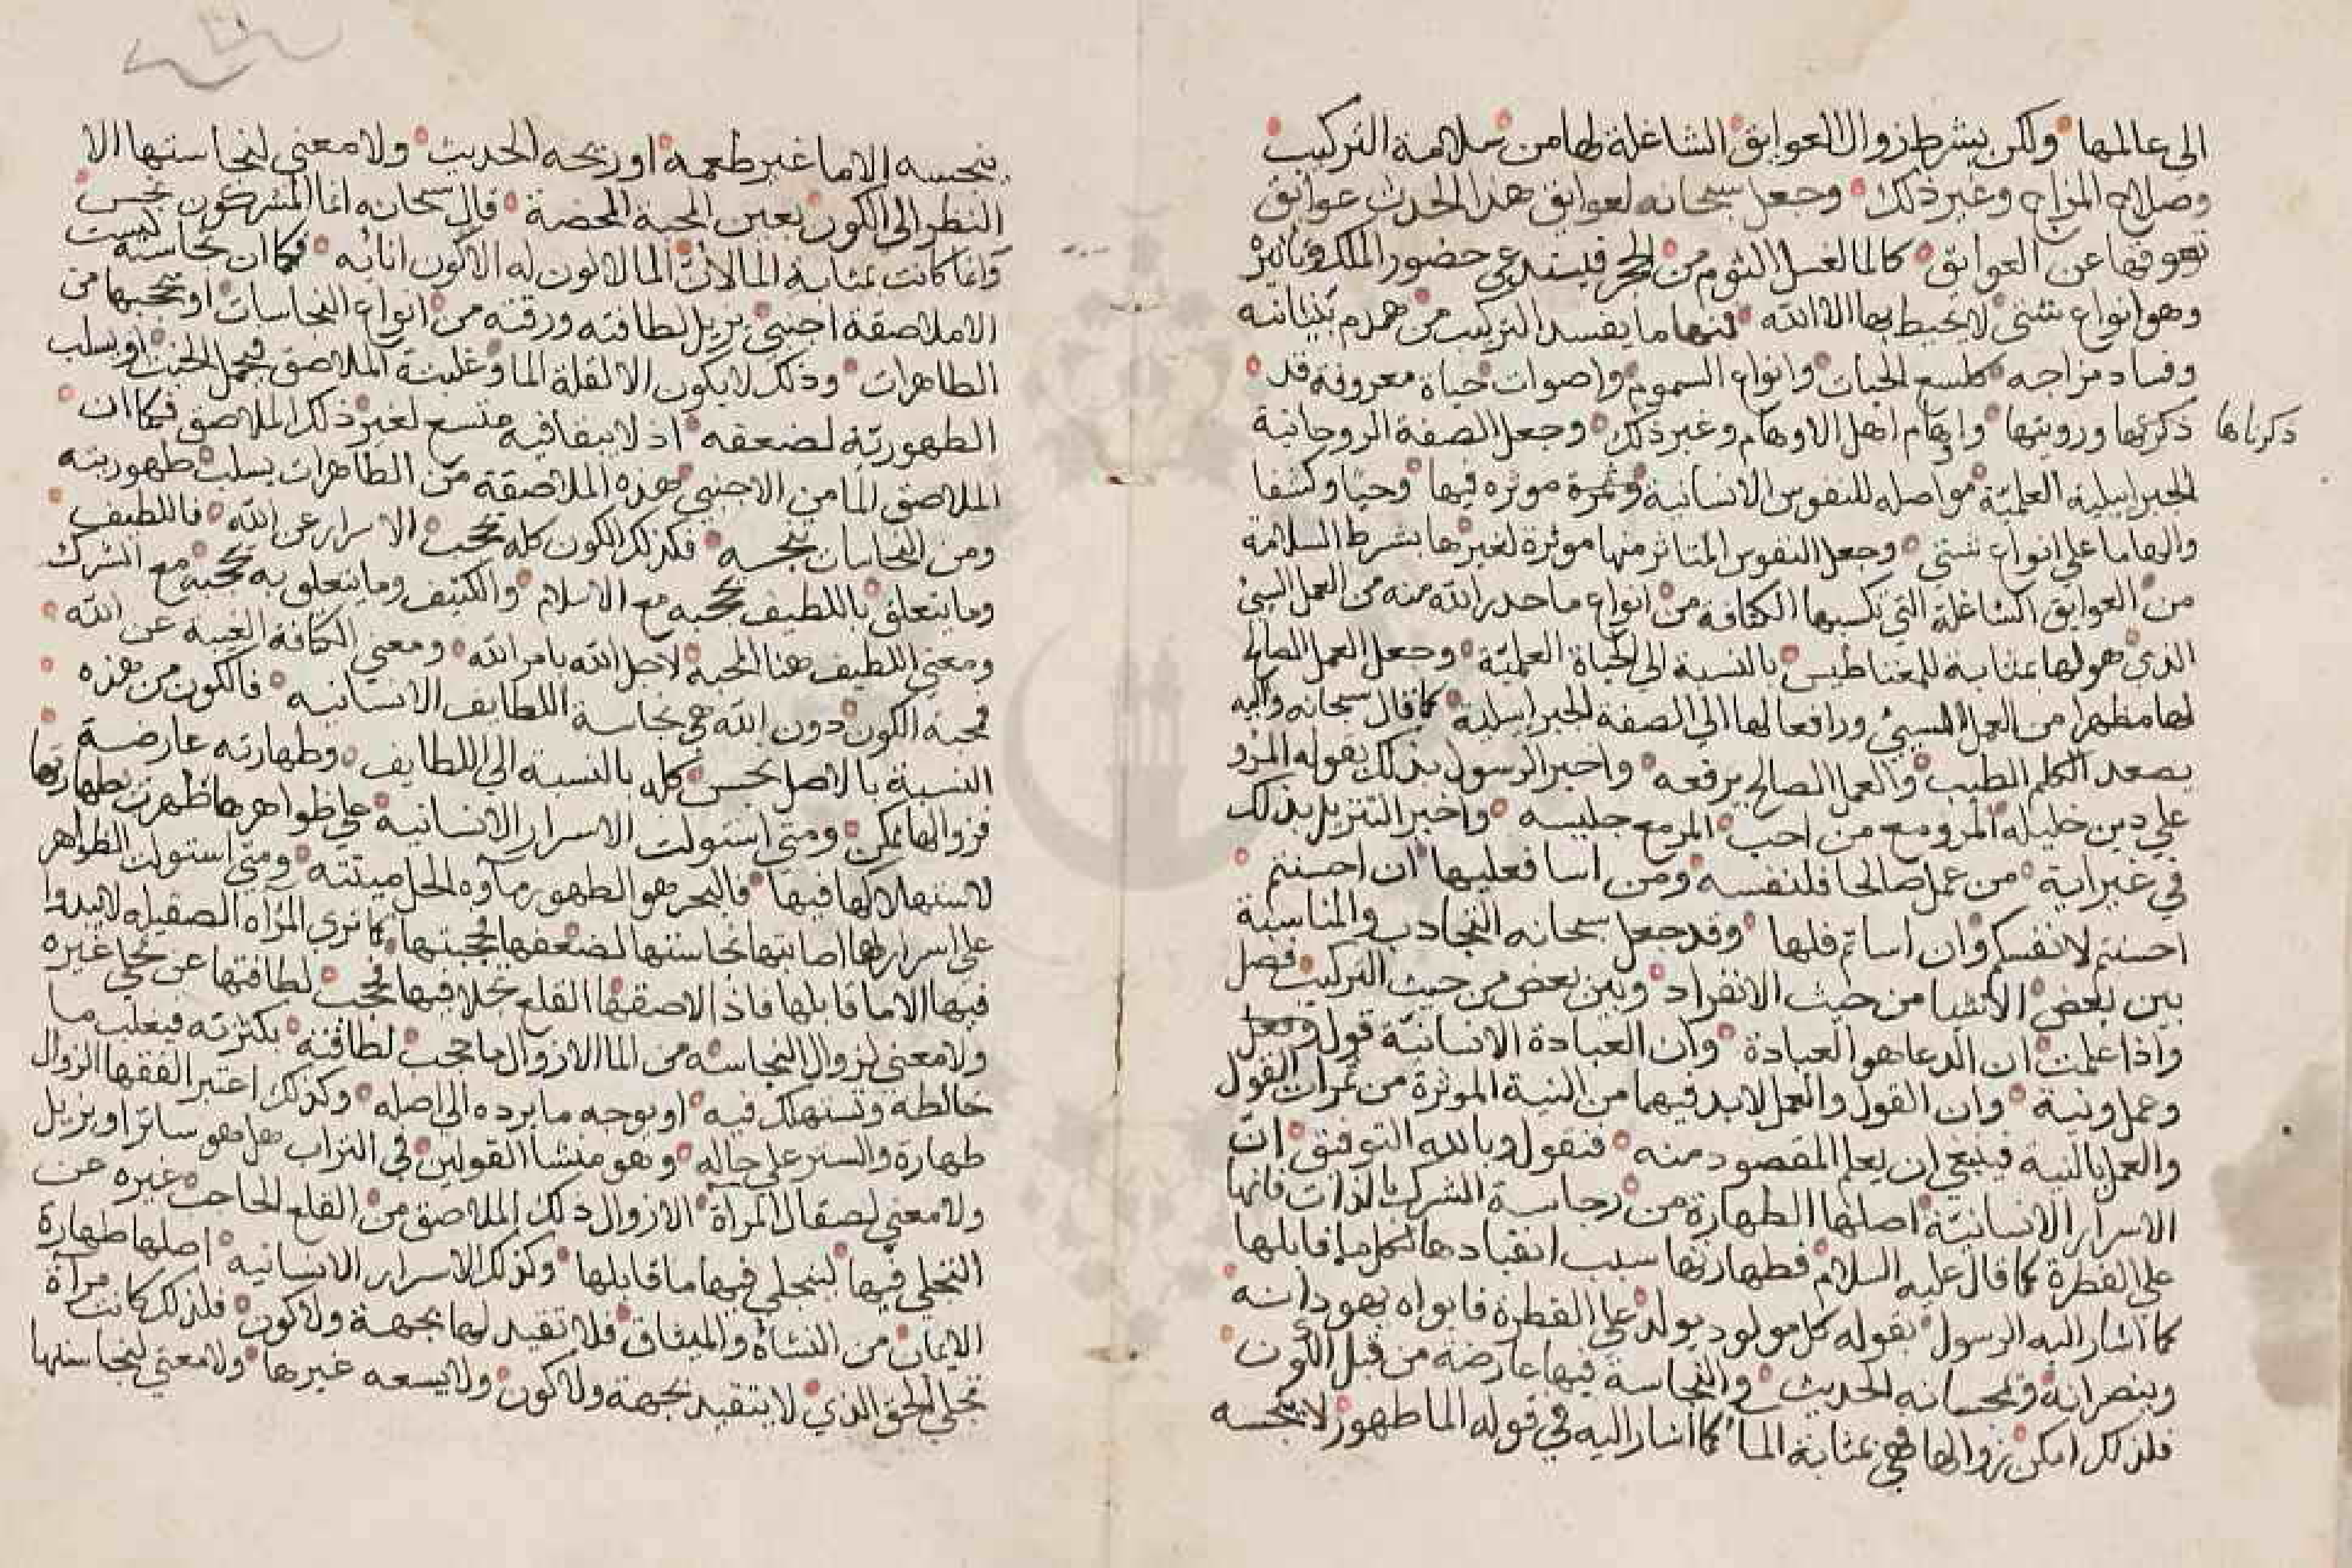 الى عالمها ولكن بشرط زوال العوايق الشاغلة لها من سلامة التركيب
وصلاح المزاج وغير ذلك وجعل سبحانه لعوايق هذا الحدث عوايق
تعوقها عن العوايق كالما لغسل الثوم من الحجر فيستدعى حضور الملك وتاثيره
وهو انواع شتى لا يحيط بها الا الله فمنها ما يفسد التركيب من هدم بنيانه
وفساد مزاجه كلسع الحيات وانواع السموم واصوات حياة معروفة قد
ذكرتها ورويتها وايهام اهل الاوهام وغير ذلك وجعل الصفة الروحانية
ذكرناها
الجبرايلية العلمية مواصله للنفوس الانسانية وثمرة موثره فيها وحيا وكشفا
والهاما على انواع شتى وجعل النفوس المتاثر منها موثرة لغيرها بشرط السلامة
من العوايق الشاغلة التي تكسبها الكثافة من انواع ما حدر الله منه من العمل السيئ
الذي هو لها بمثابة للمغناطيس بالنسبة الى الحياة العملية وجعل العمل الصالح
لها مطهرا من العمل المسيئ ورافعا لها الى الصفة الجبرايلية كما قال سبحانه واليه
يصعد الكلم الطيب والعمل الصالح يرفعه واخبر الرسول بذلك بقوله المرو
على دين خليله المرو مع من احب المر مع جليسه واخبر التنزيل بذلك
في غير اية من عمل صالحا فلنفسه ومن اسا فعليها ان احسنتم
احسنتم لانفسكم وان اساتم فلها وقد جعل سبحانه التجادب والمناسبة
بين بعض الاشيا من حيث الانفراد وبين بعض من حيث التركيب فصل
واذا علمت ان الدعا هو العبادة وان العبادة الانسانية قول وفعل
وعمل ونية وان القول والعمل لابد فيهما من النية الموثرة من ثمرات القول
والعمل بالنية فينبغي ان يعلم المقصود منه فنقول وبالله التوفيق ان
الاسرار الانسانية اصلها الطهارة من رجاسة الشرك بالذات فانها
على الفطرة كما قال عليه السلام فطهارتها سبب انقيادها لكل ما قابلها
كما اشار اليه الرسول بقوله كل مولود يولد على الفطرة فابواه يهودانه
وينصرانه ويمجسانه الحديث والنجاسة فيها عارضة من قبل الكون
فلذلك امكن زوالها فهي بمثابة الما كما اشار اليه في قوله الما طهور لا ينجسه
ينجسه الا ما غير طعمه او ريحه الحديث ولا معنى لنجاستها الا
النظر الى الكون بعين المحبة المحضة قال سبحانه انما المشركون نجس
وانما كانت بمثابة الما لان الما لا لون له الا لون انائه فكما ان نجاسته ليست
الا ملاصقة اجنبي يزيل لطافته ورقته من انواع النجاسات او يحجبها من
الطاهرات وذلك لا يكون الا لقلة الما وغلبة الملاصق فيحمل الخبث او يسلب
الطهورية لضعفه اذ لا يبقا فيه متسع لغير ذلك الملاصق فكما ان
الملاصق الما من الاجنبي هذه الملاصقة من الطاهرات يسلب طهوريته
ومن النجاسات ينجسه فكذلك الكون كله يحجب الاسرار عن الله فاللطيف
وما يتعلق باللطيف محبه مع الاسلام والكثيف وما يتعلق به محبة مع الشرك
ومعنى اللطيف هنا المحبة لاجل الله بامر الله ومعنى الكثافة الغيبة عن الله
فمحبة الكون دون الله هي نجاسة اللطايف الانسانيه فالكون من هذه
النسبة بالاصل نجس كله بالنسبة الى اللطايف وطهارته عارضة
فزوالها ممكن ومتى استولت الاسرار الانسانية على ظواهرها ظهرت بطهارتها
لاستهلاكها فيها فالبحر هو الطهور ماؤه الحل ميتته ومتى استولت الظواهر
على اسرارها اصابتها نجاستها لضعفها فحجبتها كما ترى المرآه الصقيله لا يبدوا
فيها الا ما قابلها فاذا لاصقها القلع تجلا فيها فحجب لطافتها عن تجلي غيره
ولا معنى لزوال النجاسه من الما الا زوال ما حجب لطافته بكثرته فيغلب ما
خالطه وتستهلك فيه او بوجه ما يرده الى اصله وكذلك اعتبر الفقها الزوال
طهارة والستر على حاله وهو منشا القولين في التراب هل هو ساترا او يزيل
ولا معنى لصقال المرآة الا زوال ذلك الملاصق من القلع الحاجب غيره عن
التجلي فيها ليتجلي فيها ما قابلها وكذلك الاسرار الانسانيه اصلها طهارة
الايمان من النشاة والميثاق فلا تقيد لها بجهة ولا كون فلذلك كانت مرآة
تجلي الحق الذي لا يتقيد بجهة ولا كون ولا يسعه غيرها ولا معنى لنجاستها